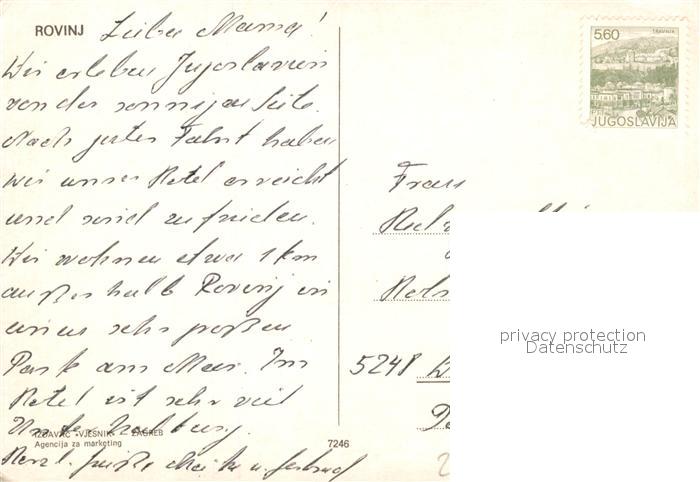 ROVINJ Liebe Mama!
Wir erleben Jugoslawien
von der sonnigen Seite.
Nach guter Fahrt haben
wir unser Hotel erreicht
und sind zufrieden.
Wir wohnen etwa 1 km
außerhalb Rovinj in
einem sehr großen
Park am Meer. Im
Hotel ist sehr viel
IZDAVAČ »VJESNIK« ZAGREB
Agencija za marketing
7246
Herzl. Grüße
5.60
TRAVNIK
JUGOSLAVIJA
Frau
5248
privacy protection
Datenschutz